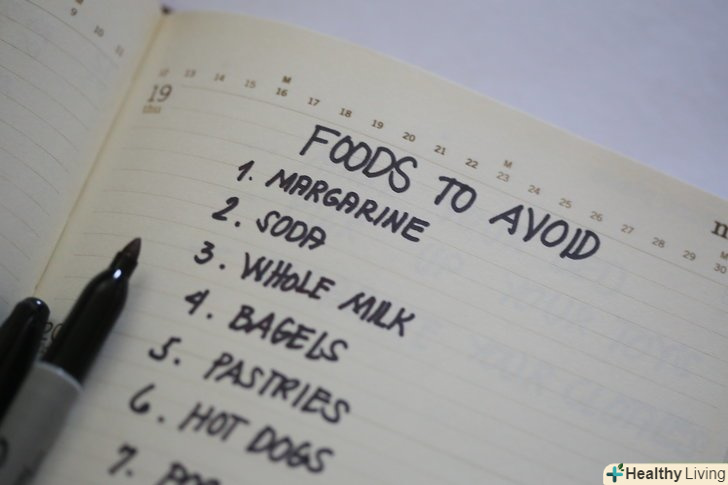 9 10 11
12 13 14 15 16 17 18 19 20 21 22 23 24 25 26 27 28 29 30
M M M
19
thu
FOODS TO AVOID
1. MARGARINE
2. SODA
3. WHOLE MILK
4. BAGELS
5. PASTRIES
6. HOT DOGS
7.
Healthy Living